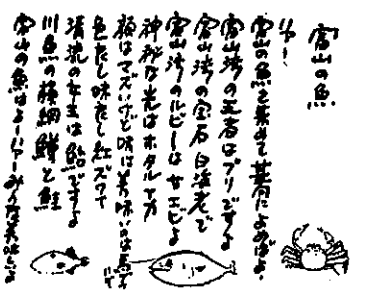 富山の魚
富山の魚を集めて甚句によめばよ
富山湾の王者はブリですよ
富山湾の宝石白海老で
富山湾のルビーは甘エビよ
神秘な光はホタルイカ
顔はマズいけど味は美味い
色だし味だし紅ズワイ
清流の女王は鮎ですよ
川魚の横綱鱒と鮭
富山の魚はよーハアーみんな美味しいよ